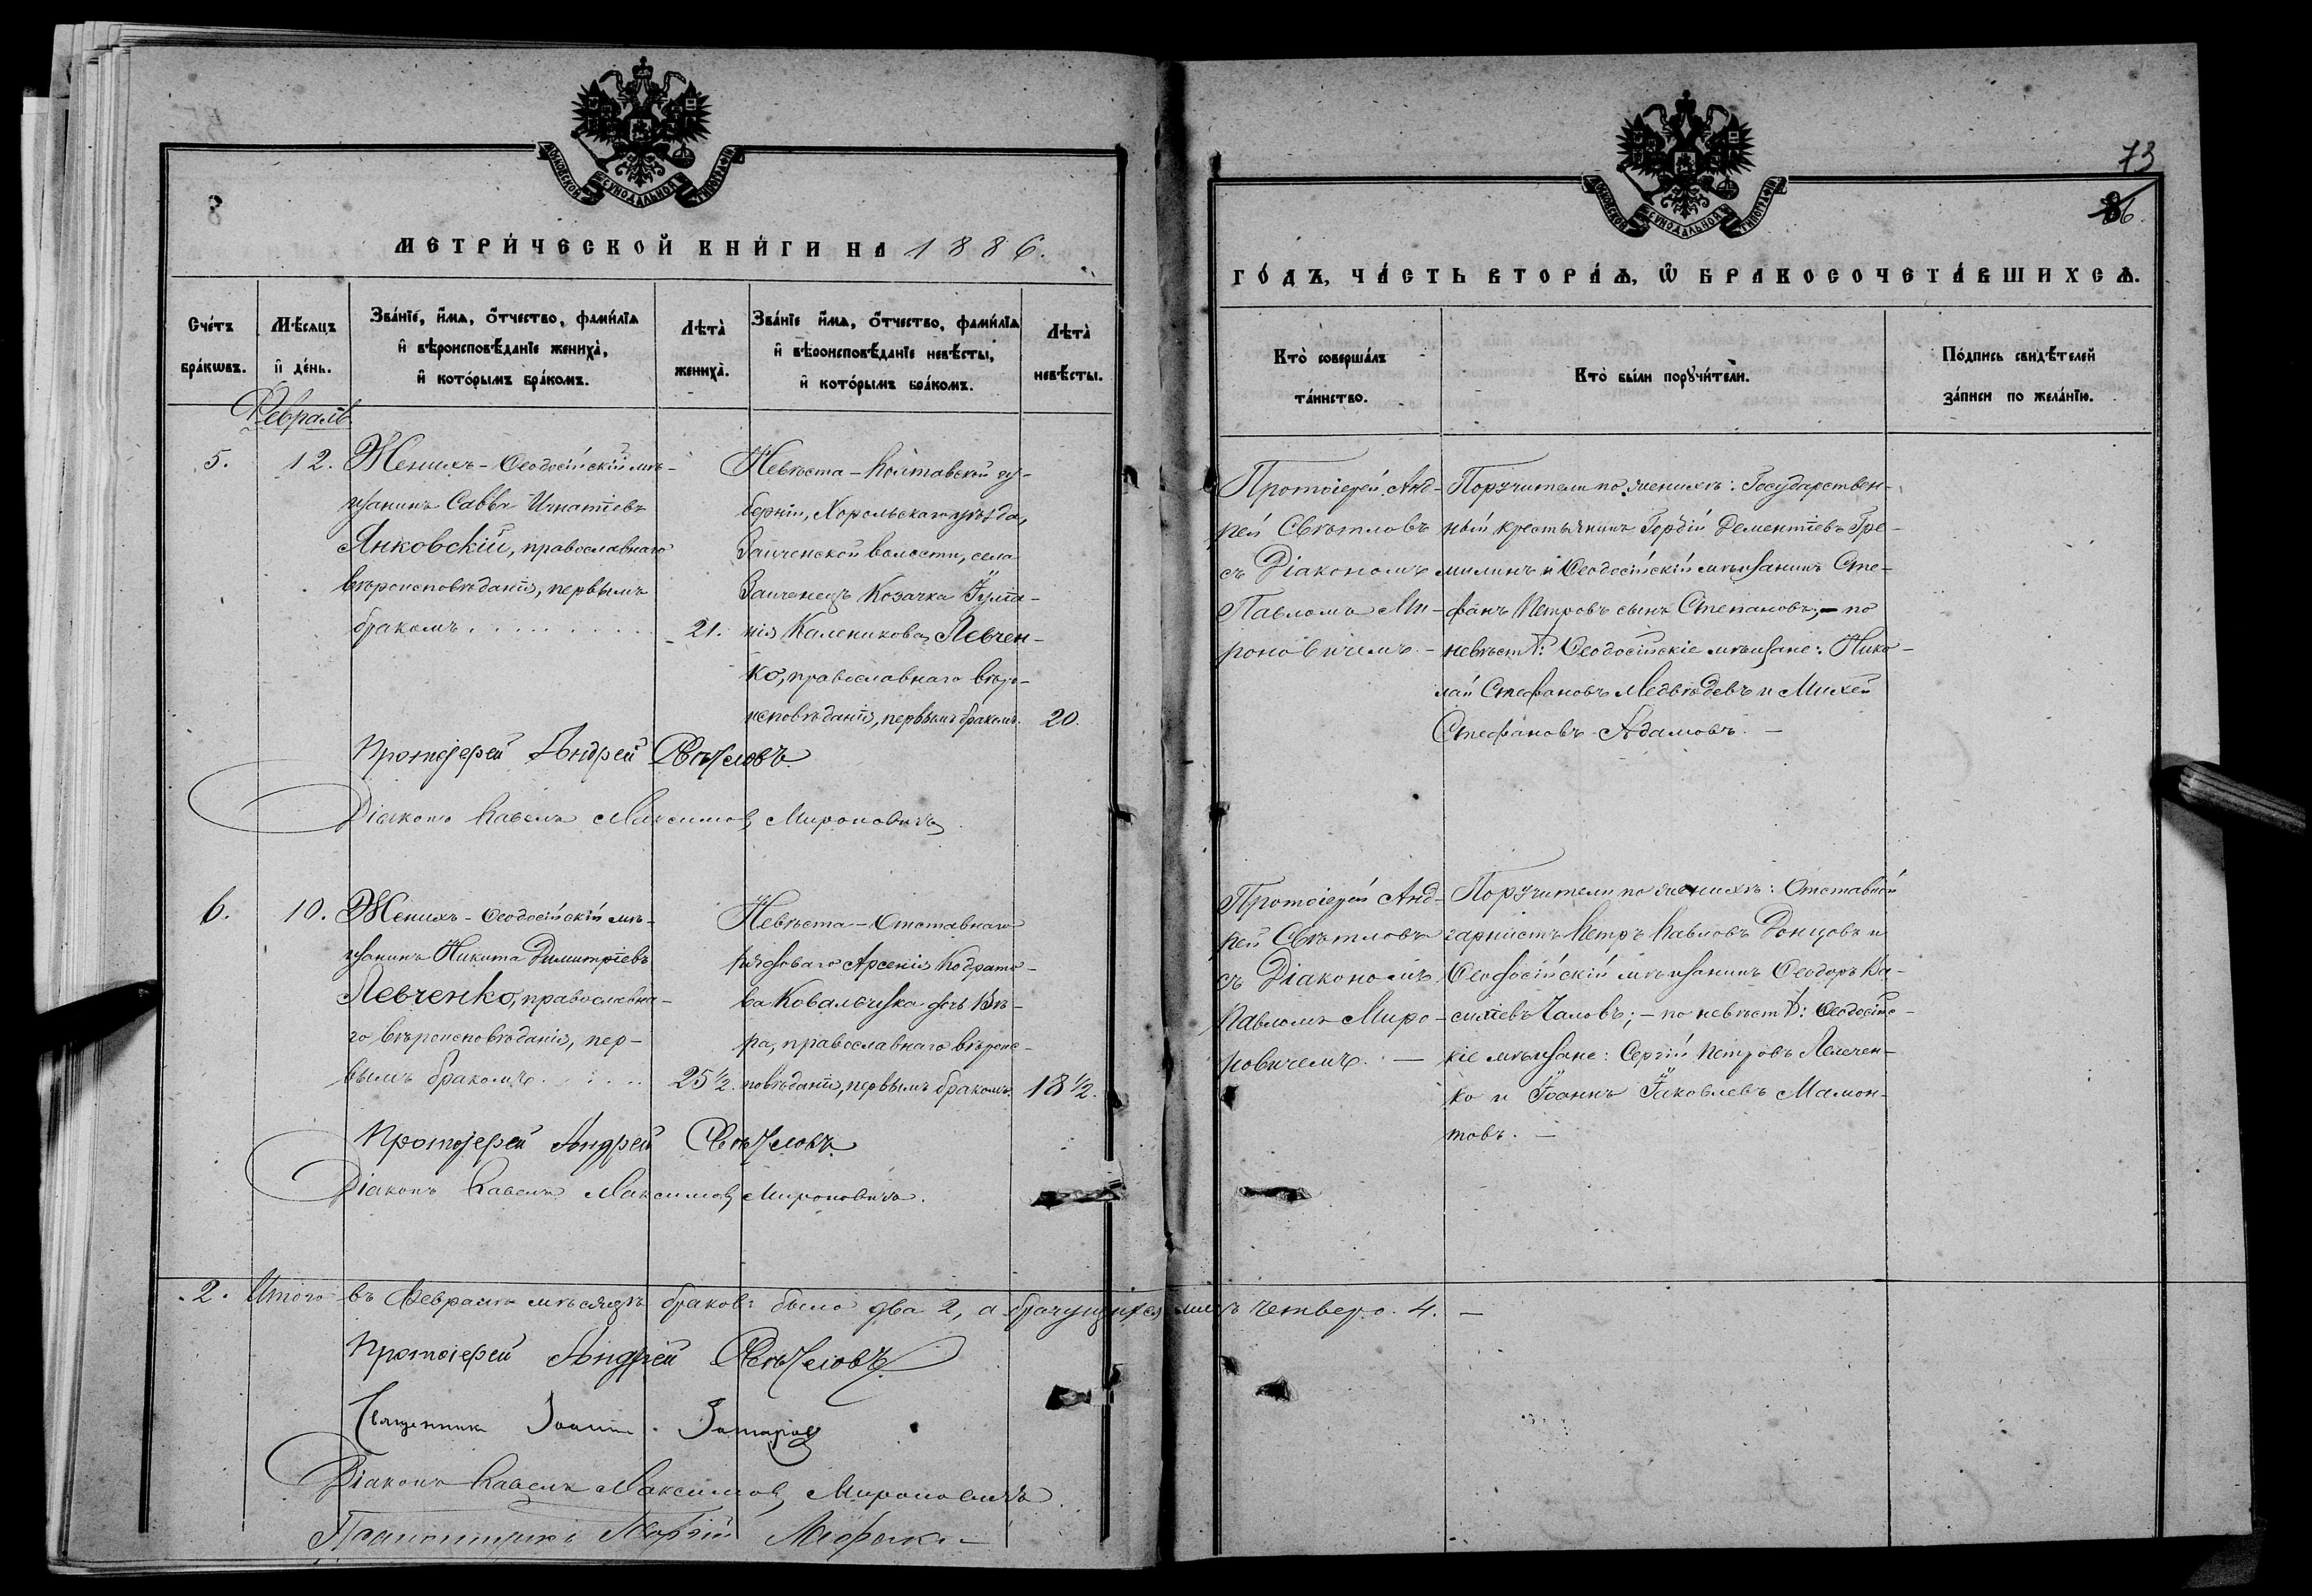 МОСКОВСКОЙ СѴНОДАЛЬНОЙ ТИПОГРАФІИ
8
МЕТРИ́ЧЕСКОЙ КНИ́ГИ НА 1886.
Сче́тъ бра́кѡвъ.
Мѣ́сѧцъ и҆ де́нь.
Зва́нїе, и҆́мѧ, ѻ҆́тчество, фами́лїѧ и҆ вѣроисповѣ́данїе жениха̀, и҆ кото́рымъ бра́комъ.
Лѣта̀ жениха̀.
Зва́нїе и҆́мѧ, ѻ҆́тчество, фами́лїѧ и҆ вѣроисповѣ́данїе невѣ́сты, и҆ кото́рымъ бра́комъ.
Лѣта̀ невѣ́сты.
Февраль
5.
12.
Женихъ - Ѳеодосійскій мѣ-
щанинъ Савва Игнатіевъ
Янковскій, православнаго
вѣроисповѣданія, первымъ
бракомъ . . . . . . . . .
21.
Невѣста - Полтавской гу-
берніи, Хорольскаго уѣзда,
Заиченской волости, села
Заиченецъ Козачка Іулiа-
нія Каленикова Левчен-
ко, православнаго вѣро-
исповѣданія, первымъ бракомъ.
20.
Протоіерей Андрей Свѣтловъ
Діаконъ Павелъ Максимовъ Мироновичъ
6.
10.
Женихъ - Ѳеодосійскій мѣ-
щанинъ Никита Димитріевъ
Левченко, православна-
го вѣроисповѣданія, пер-
вымъ бракомъ . . . . .
25 1/2.
Невѣста - Отставнаго
рядоваго Арсенія Кодрато-
ва Ковальчука дочь Вѣ-
ра, православнаго вѣроис-
повѣданія, первымъ бракомъ.
18 1/2.
Протоіерей Андрей Свѣтловъ
Діаконъ Павелъ Максимовъ Мироновичъ.
2. Итого въ Февралѣ мѣсяцѣ браковъ было два 2, а брачущихся лицъ четверо. 4. —
Протоіерей Андрей Свѣтловъ
Священникъ Іоаннъ
Діаконъ Павелъ Максимовъ Мироновичъ
Псаломщикъ
МОСКОВСКОЙ СѴНОДАЛЬНОЙ ТИПОГРАФІИ
73
86.
ГО́ДЪ, ЧА́СТЬ ВТОРА́Ѧ, Ѡ҆ БРАКОСОЧЕТА́ВШИХСѦ.
Кто̀ соверша́лъ та́инство.
Кто̀ бы́ли порꙋчи́тели.
По́дпись свидѣ́телей за́писи по жела́нїю.
Протоіерей Анд-
рей Свѣтловъ
съ Діакономъ
Павломъ Ми-
роновичемъ. -
Поручители по женихѣ: Государствен-
ный крестьянинъ Гордій Дементіевъ Гре-
милинъ и Ѳеодосійскій мѣщанинъ Сте-
фанъ Петровъ сынъ Степановъ; - по
невѣстѣ: Ѳеодосійскіе мѣщане: Нико-
лай Стефановъ Медвѣдевъ и Михей
Стефановъ Адамовъ. —
Протоіерей Анд-
рей Свѣтловъ
съ Діакономъ
Павломъ Миро-
новичемъ. —
Поручители по женихѣ: Отставной
гарнистъ Петръ Павловъ Донцовъ и
Ѳеодосійскій мѣщанинъ Ѳеодоръ Ва-
силіевъ Чаловъ; - по невѣстѣ: Ѳеодосійс-
кіе мѣщане: Сергій Петровъ Лемчен-
ко и Іоаннъ Іаковлевъ Мамон-
товъ. —